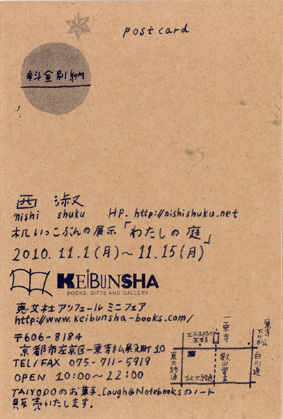 postcard
料金別納
西 淑
nishi shuku HP. http://nishishuku.net
机いっこぶんの展示「わたしの庭」
2010. 11.1(月)〜11.15(月)
KEIBUNSHA
BOOKS, GIFTS AND GALLERY
恵文社 アンフェール ミニフェア
http://www.keibunsha-books.com/
〒606-8184
京都市左京区一乗寺払殿町10
TEL/FAX 075-711-5919
OPEN 10:00〜22:00
TAIYODOのお菓子、Laugh@Notebooksのノート
販売いたします。
一乗寺
東大路通
叡山電車
白川通